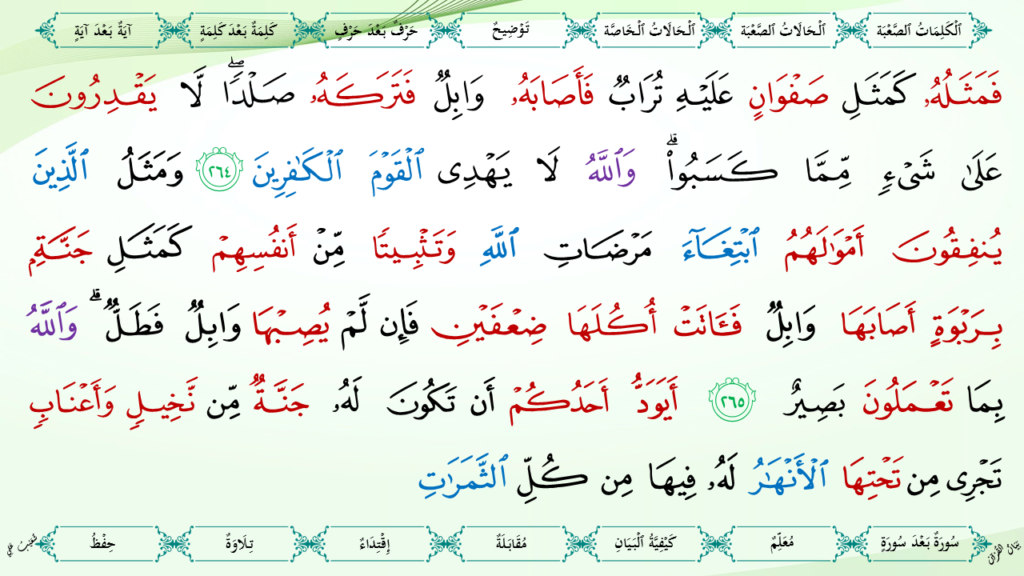 ٱلْكَلِمَاتُ ٱلصَّعْبَة ٱلْحَالَاتُ ٱلصَّعْبَة ٱلْحَالَاتُ ٱلْخَاصَّة تَوْضِيحٌ حَرْفٌ بَعْدَ حَرْفٍ كَلِمَةٌ بَعْدَ كَلِمَةٍ آيَةٌ بَعْدَ آيَةٍ
فَمَثَلُهُۥ كَمَثَلِ صَفْوَانٍ عَلَيْهِ تُرَابٌ فَأَصَابَهُۥ وَابِلٌ فَتَرَكَهُۥ صَلْدًاۖ لَّا يَقْدِرُونَ
عَلَىٰ شَىْءٍ مِّمَّا كَسَبُوا۟ۗ وَٱللَّهُ لَا يَهْدِى ٱلْقَوْمَ ٱلْكَـٰفِرِينَ ٢٦٤ وَمَثَلُ ٱلَّذِينَ
يُنفِقُونَ أَمْوَٰلَهُمُ ٱبْتِغَآءَ مَرْضَاتِ ٱللَّهِ وَتَثْبِيتًا مِّنْ أَنفُسِهِمْ كَمَثَلِ جَنَّةٍۭ
بِرَبْوَةٍ أَصَابَهَا وَابِلٌ فَـَٔاتَتْ أُكُلَهَا ضِعْفَيْنِ فَإِن لَّمْ يُصِبْهَا وَابِلٌ فَطَلٌّۗ وَٱللَّهُ
بِمَا تَعْمَلُونَ بَصِيرٌ ٢٦٥ أَيَوَدُّ أَحَدُكُمْ أَن تَكُونَ لَهُۥ جَنَّةٌ مِّن نَّخِيلٍ وَأَعْنَابٍ
تَجْرِى مِن تَحْتِهَا ٱلْأَنْهَـٰرُ لَهُۥ فِيهَا مِن كُلِّ ٱلثَّمَرَٰتِ
سُورَةٌ بَعْدَ سُورَةٍ مُعَلِّمٌ كَيْفِيَّةُ ٱلْبَيَانِ مُقَابَلَةٌ إِقْتِدَاءٌ تِلَاوَةٌ حِفْظٌ